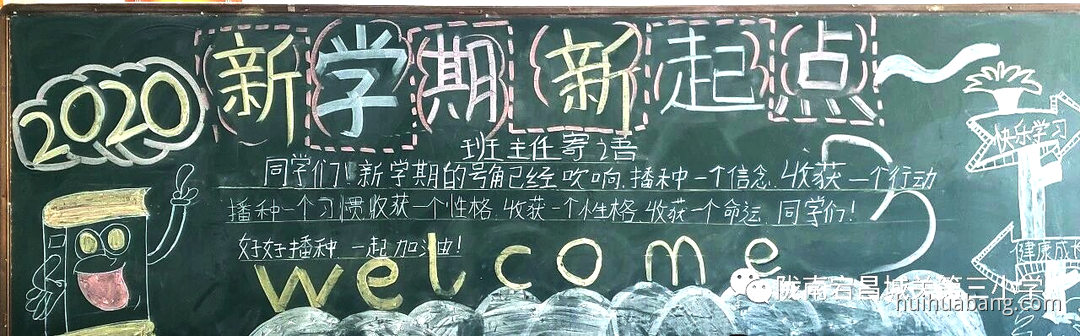 2020
新学期 新起点
班主任寄语
同学们!新学期的号角已经吹响.播种一个信念.收获一个行动
播种一个习惯.收获一个性格.收获一个性格.收获一个命运.同学们!
好好播种.一起加油!
welcome
快乐学习
健康成长
陇南宕昌城关第三小学
huihuabang.com